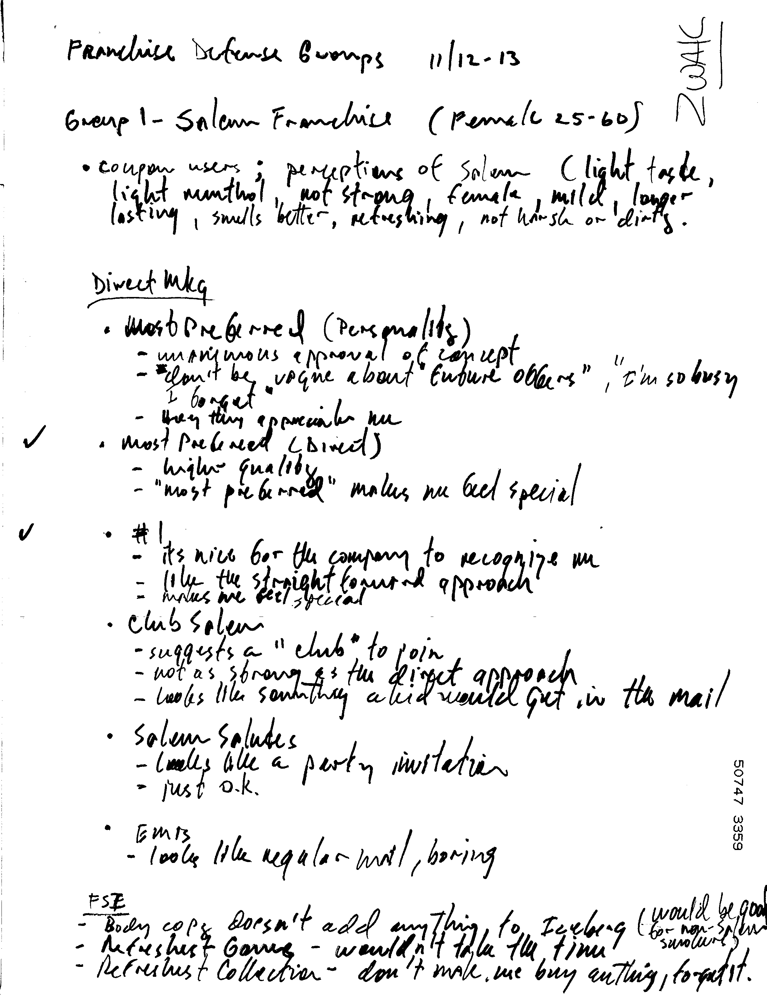 Franchise Defense Groups 11/12-13
ZWAIC
Group 1 - Salem Franchise (Female 25-60)
• coupon users ; perceptions of Salem (light taste,
light menthol, not strong, female, mild, longer
lasting, smells better, refreshing, not harsh or dirty.
Direct Mkg
• Most Preferred (Personality)
- unanimous approval of concept
- "don't be vague about "future offers", "I'm so busy
I forget"
- they appreciate me
✓ • Most Preferred (Direct)
- higher quality
- "most preferred" makes me feel special
✓ • #1
- its nice for the company to recognize me
- like the straight forward approach
- makes me feel special
• Club Salem
- suggests a "club" to join
- not as strong as the direct approach
- looks like something a kid would get in the mail
• Salem Salutes
- looks like a party invitation
- just o.k.
•
- looks like regular mail, boring
FSI
- Body copy doesn't add anything to Iceberg (would be good
for non-Salem
smokers)
- Refreshest Games - wouldn't take the time
- Refreshest Collection - don't make me buy anything, forget it.
50747 3359